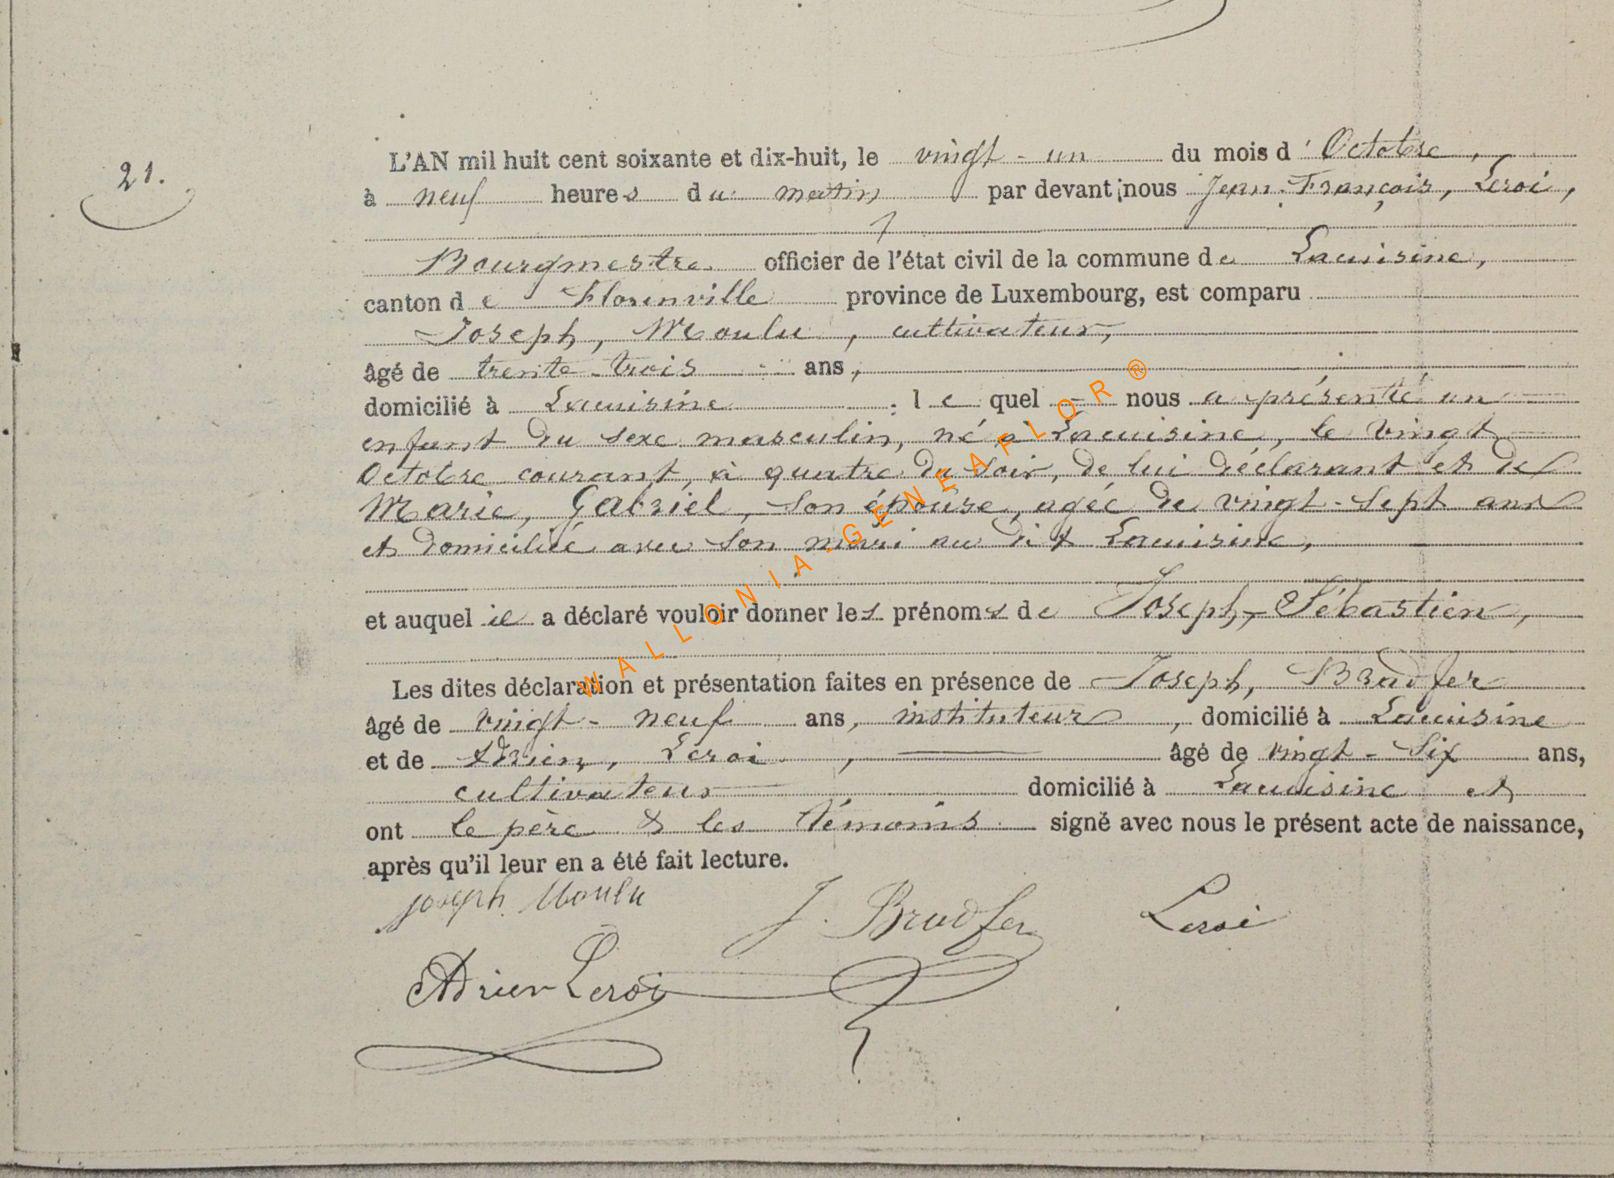 21.
L'AN mil huit cent soixante et dix-huit, le vingt-un du mois d'Octobre,
à neuf heures du matin par devant nous Jean-François, Leroi,
Bourgmestre officier de l'état civil de la commune de Lacuisine,
canton de Florenville province de Luxembourg, est comparu
Joseph, Moulu, cultivateur,
âgé de trente-trois ans,
domicilié à Lacuisine ; lequel nous a présenté un
enfant du sexe masculin, né à Lacuisine, le vingt
Octobre courant, à quatre du soir, de lui déclarant et de
Marie, Gabriel, son épouse, agée de vingt-sept ans
et domiciliée avec son mari au dit Lacuisine,
et auquel il a déclaré vouloir donner les prénoms de Joseph-Sébastien,
Les dites déclaration et présentation faites en présence de Joseph, Bradfer
âgé de vingt-neuf ans, instituteur, domicilié à Lacuisine
et de Adrien, Leroi, âgé de vingt-six ans,
cultivateur domicilié à Lacuisine et
ont le père & les témoins signé avec nous le présent acte de naissance,
après qu'il leur en a été fait lecture.
Joseph Moulu J. Bradfer Leroi
Adrien Leroi
WALLONIA-GENEAFLOR®